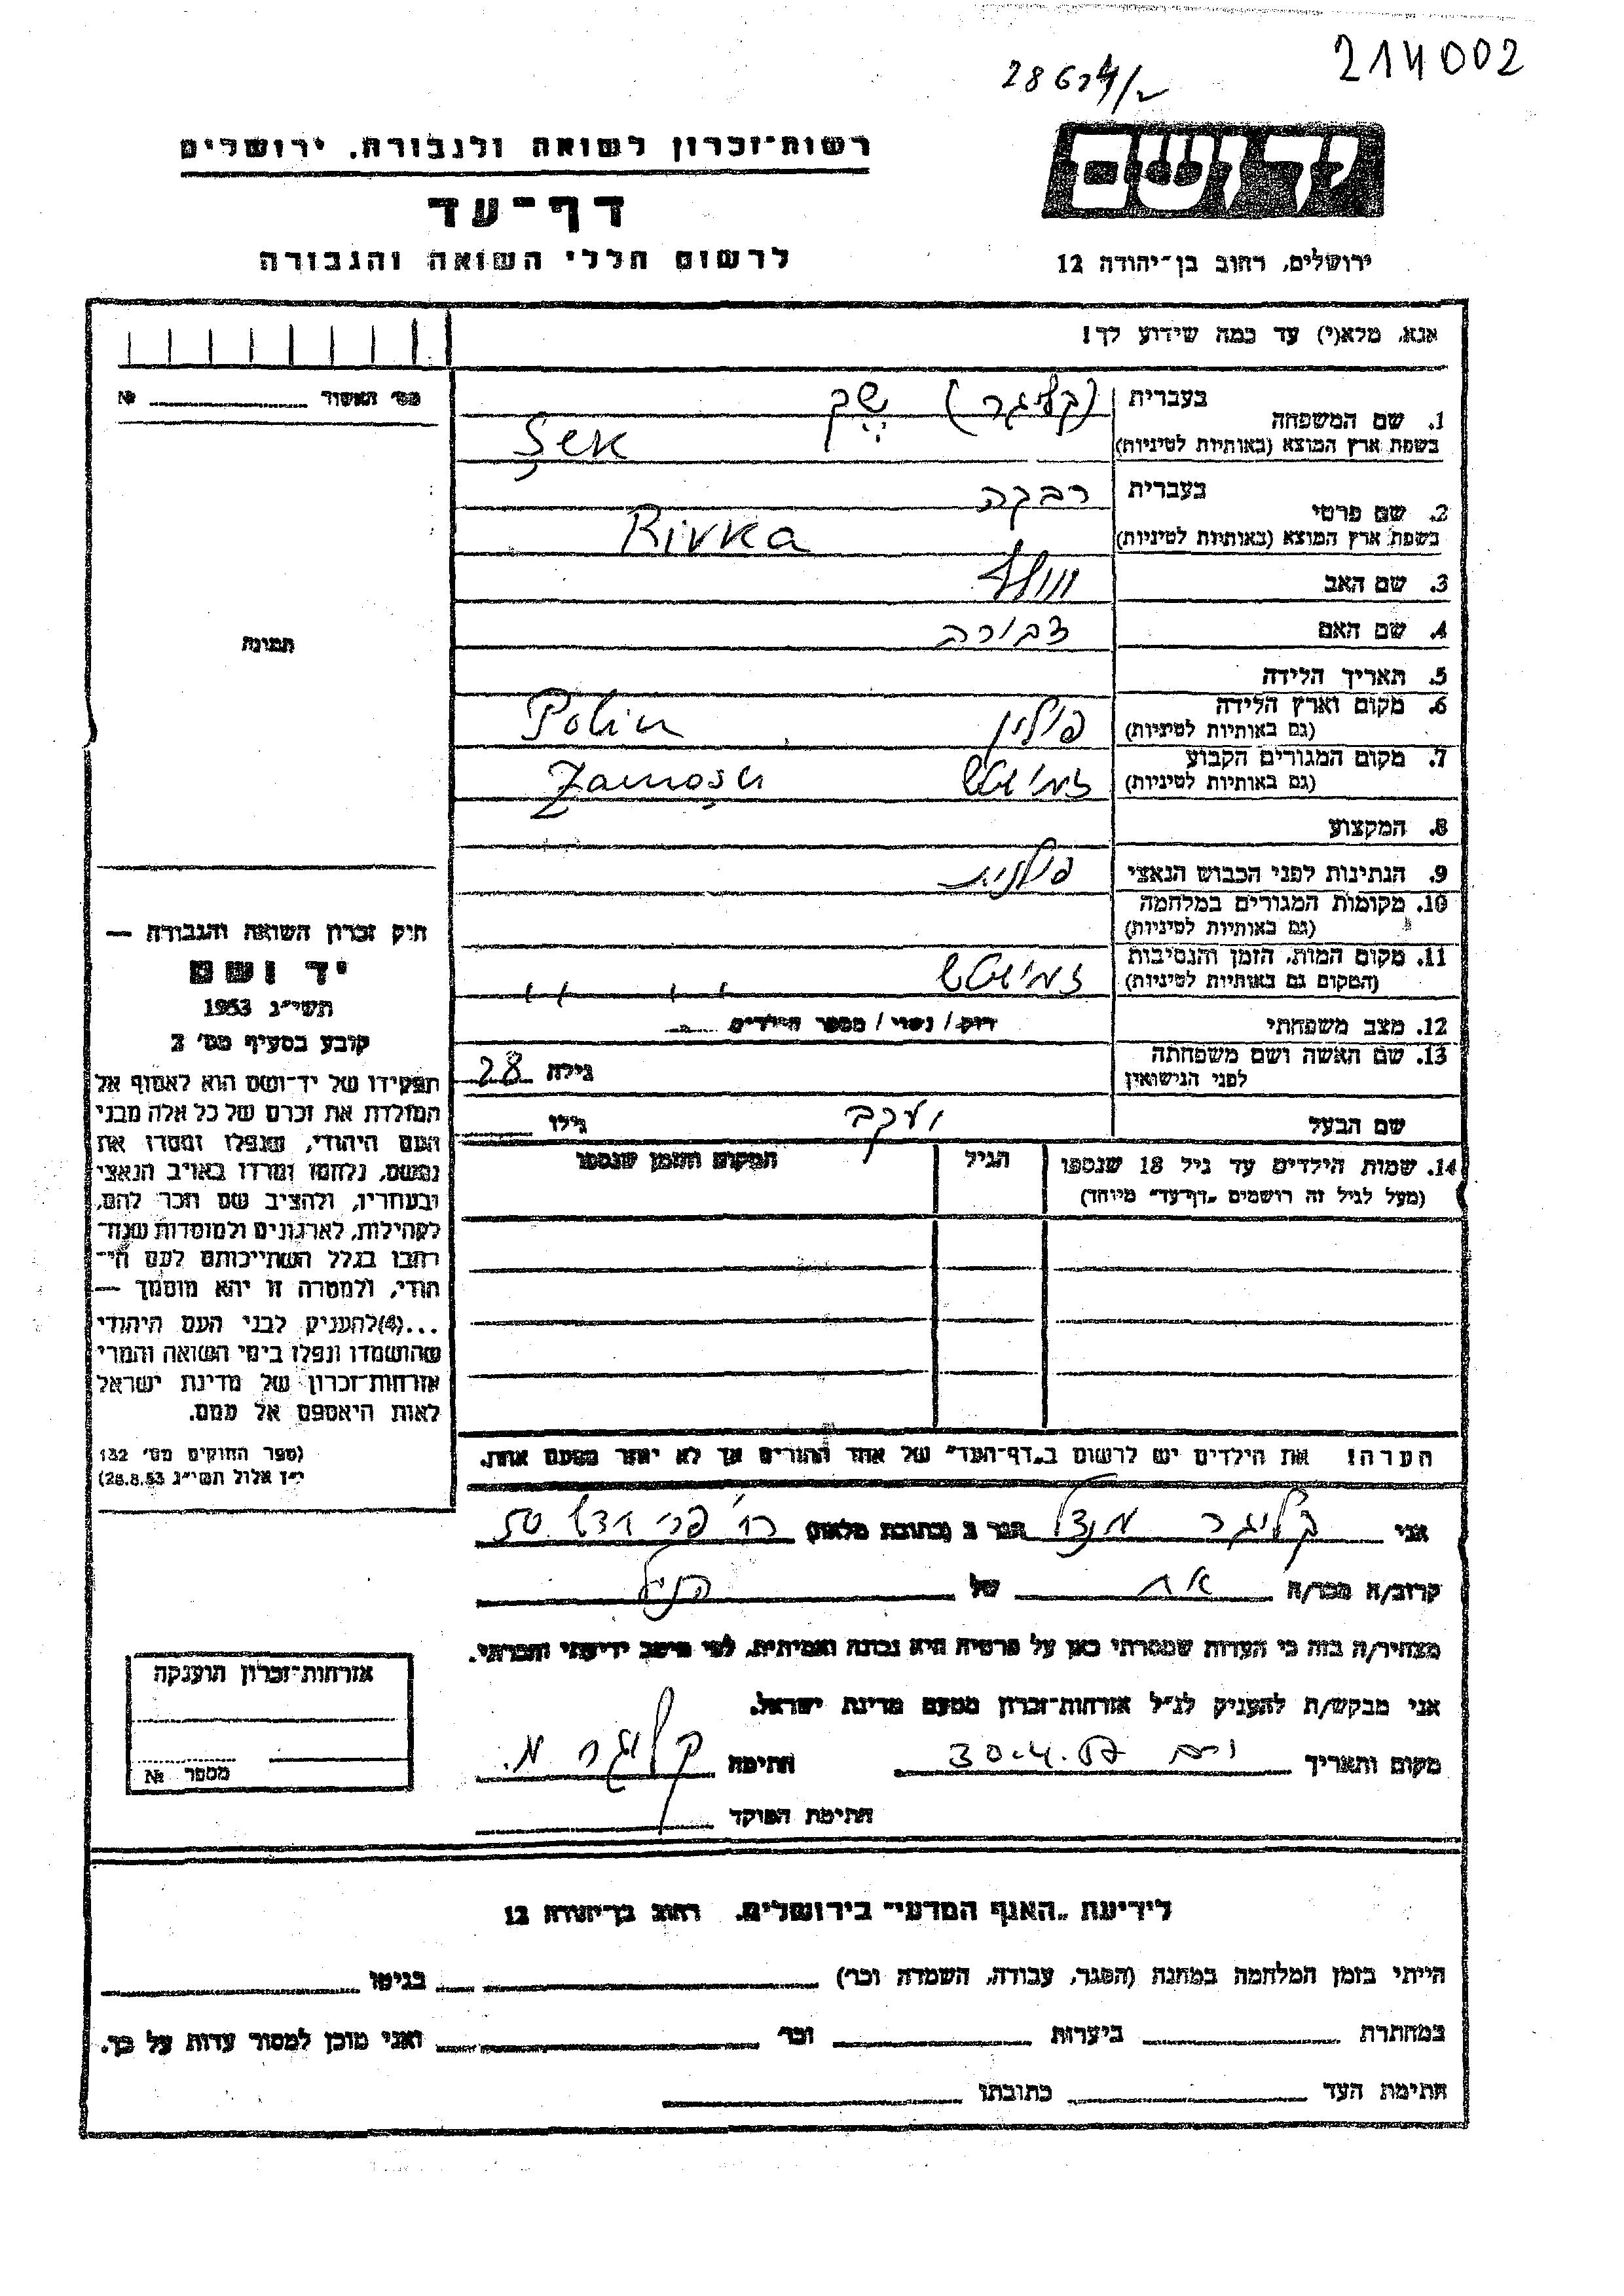 214002
רשות־זכרון לשואה ולגבורה. ירושלים
יד ושם
דף־עד
לרשום חללי השואה והגבורה
ירושלים, רחוב בן־יהודה 12
אנא, מלא(י) עד כמה שידוע לך!
מס׳ האשור № ______
1. שם המשפחה
בעברית (קליגר) שק
בשפת ארץ המוצא (באותיות לטיניות) Şek
2. שם פרטי
בעברית רבקה
בשפת ארץ המוצא (באותיות לטיניות) Rivka
3. שם האב
4. שם האם דבורה
תמונה
5. תאריך הלידה
6. מקום וארץ הלידה פולין Polin
(גם באותיות לטיניות)
7. מקום המגורים הקבוע
(גם באותיות לטיניות)
8. המקצוע
9. הנתינות לפני הכבוש הנאצי פולנית
10. מקומות המגורים במלחמה
(גם באותיות לטיניות)
11. מקום המות, הזמן והנסיבות
(המקום גם באותיות לטיניות)
12. מצב משפחתי רוק / נשוי / מספר הילדים
13. שם האשה ושם משפחתה
לפני הנישואין גילה 28
שם הבעל יעקב גילו
14. שמות הילדים עד גיל 18 שנספו הגיל המקום והזמן שנספו
(מעל לגיל זה רושמים „דף־עד״ מיוחד)
חוק זכרון השואה והגבורה —
יד ושם
תשי״ג 1953
קובע בסעיף מס׳ 2
תפקידו של יד־ושם הוא לאסוף אל
המולדת את זכרם של כל אלה מבני
העם היהודי, שנפלו ומסרו את
נפשם, נלחמו ומרדו באויב הנאצי
ובעוזריו, ולהציב שם וזכר להם,
לקהילות, לארגונים ולמוסדות שנח־
רבו בגלל השתייכותם לעם הי־
הודי, ולמטרה זו יהא מוסמך —
...(4)להעניק לבני העם היהודי
שהושמדו ונפלו בימי השואה והמרי
אזרחות־זכרון של מדינת ישראל
לאות היאספם אל עמם.
(ספר החוקים מס׳ 132
י״ז אלול תשי״ג 28.8.53)
הערה! את הילדים יש לרשום ב„דף־העד״ של אחד ההורים אך לא יותר מפעם אחת.
אני קליגר מנדל הגר ב (כתובת מלאה) 50
קרוב/ה מכר/ה אח של הנ״ל
מצהיר/ה בזה כי העדות שמסרתי כאן על פרטיה היא נכונה ואמיתית, לפי מיטב ידיעתי והכרתי.
אני מבקש/ת להעניק לנ״ל אזרחות־זכרון מטעם מדינת ישראל.
מקום ותאריך 30.4.57 חתימה קליגר מ.
חתימת הפוקד
אזרחות־זכרון הוענקה
מספר №
לידיעת „האגף המדעי״ בירושלים. רחוב בן־יהודה 12
הייתי בזמן המלחמה במחנה (הסגר, עבודה, השמדה וכו׳) ______ בגיטו ______
במחתרת ______ ביערות ______ וכו׳ ______ ואני מוכן למסור עדות על כך.
חתימת העד ______ כתובתו ______